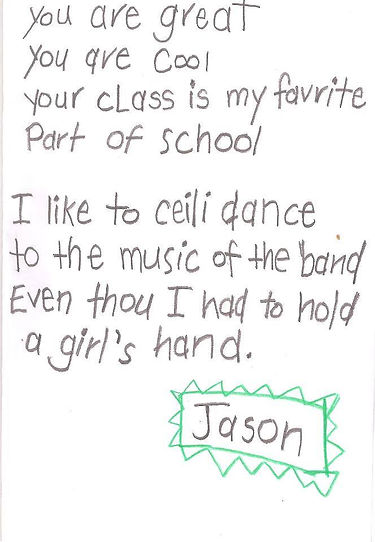 you are great
you are cool
your class is my favrite
Part of school
I like to ceili dance
to the music of the band
Even thou I had to hold
a girl's hand.
Jason